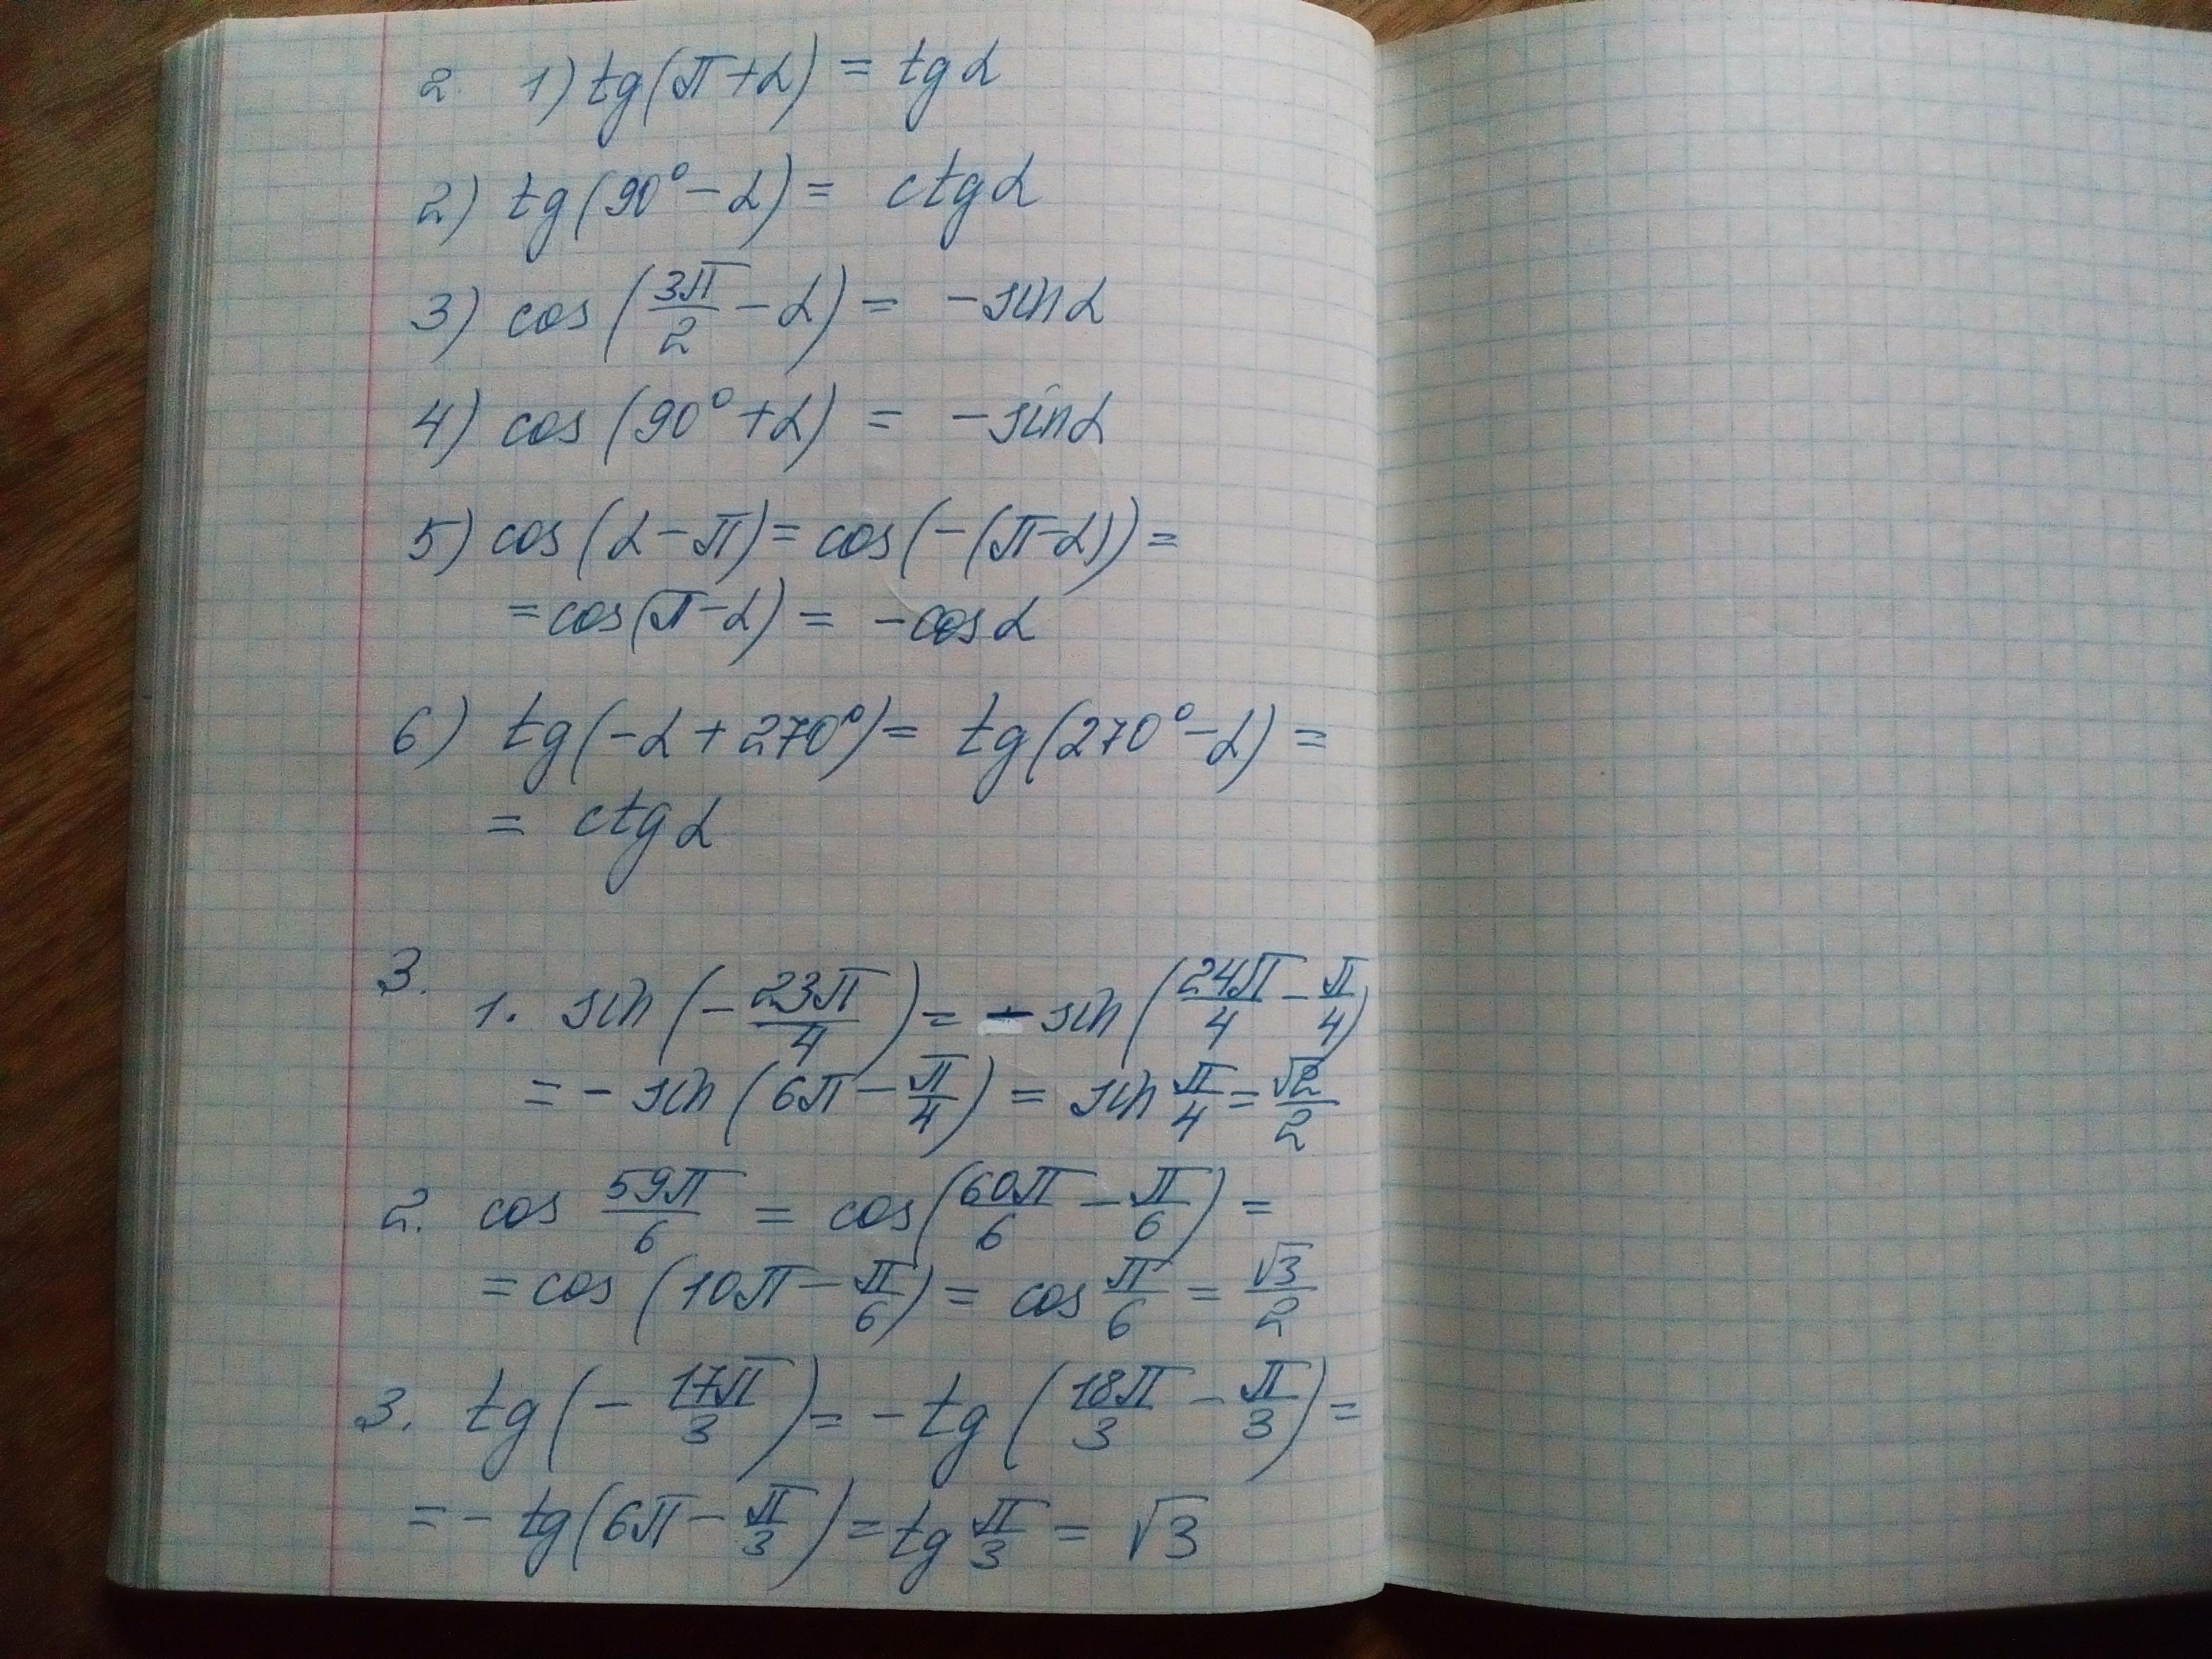 2. 1) tg(π+α) = tgα
2) tg(90°-α) = ctgα
3) cos(3π/2-α) = -sinα
4) cos(90°+α) = -sinα
5) cos(α-π) = cos(-(π-α)) =
= cos(π-α) = -cosα
6) tg(-α+270°) = tg(270°-α) =
= ctgα
3.
1. sin(-23π/4) = -sin(24π/4-π/4)
= -sin(6π-π/4) = sin π/4 = √2/2
2. cos 59π/6 = cos(60π/6-π/6) =
= cos(10π-π/6) = cos π/6 = √3/2
3. tg(-17π/3) = -tg(18π/3-π/3) =
= -tg(6π-π/3) = tg π/3 = √3